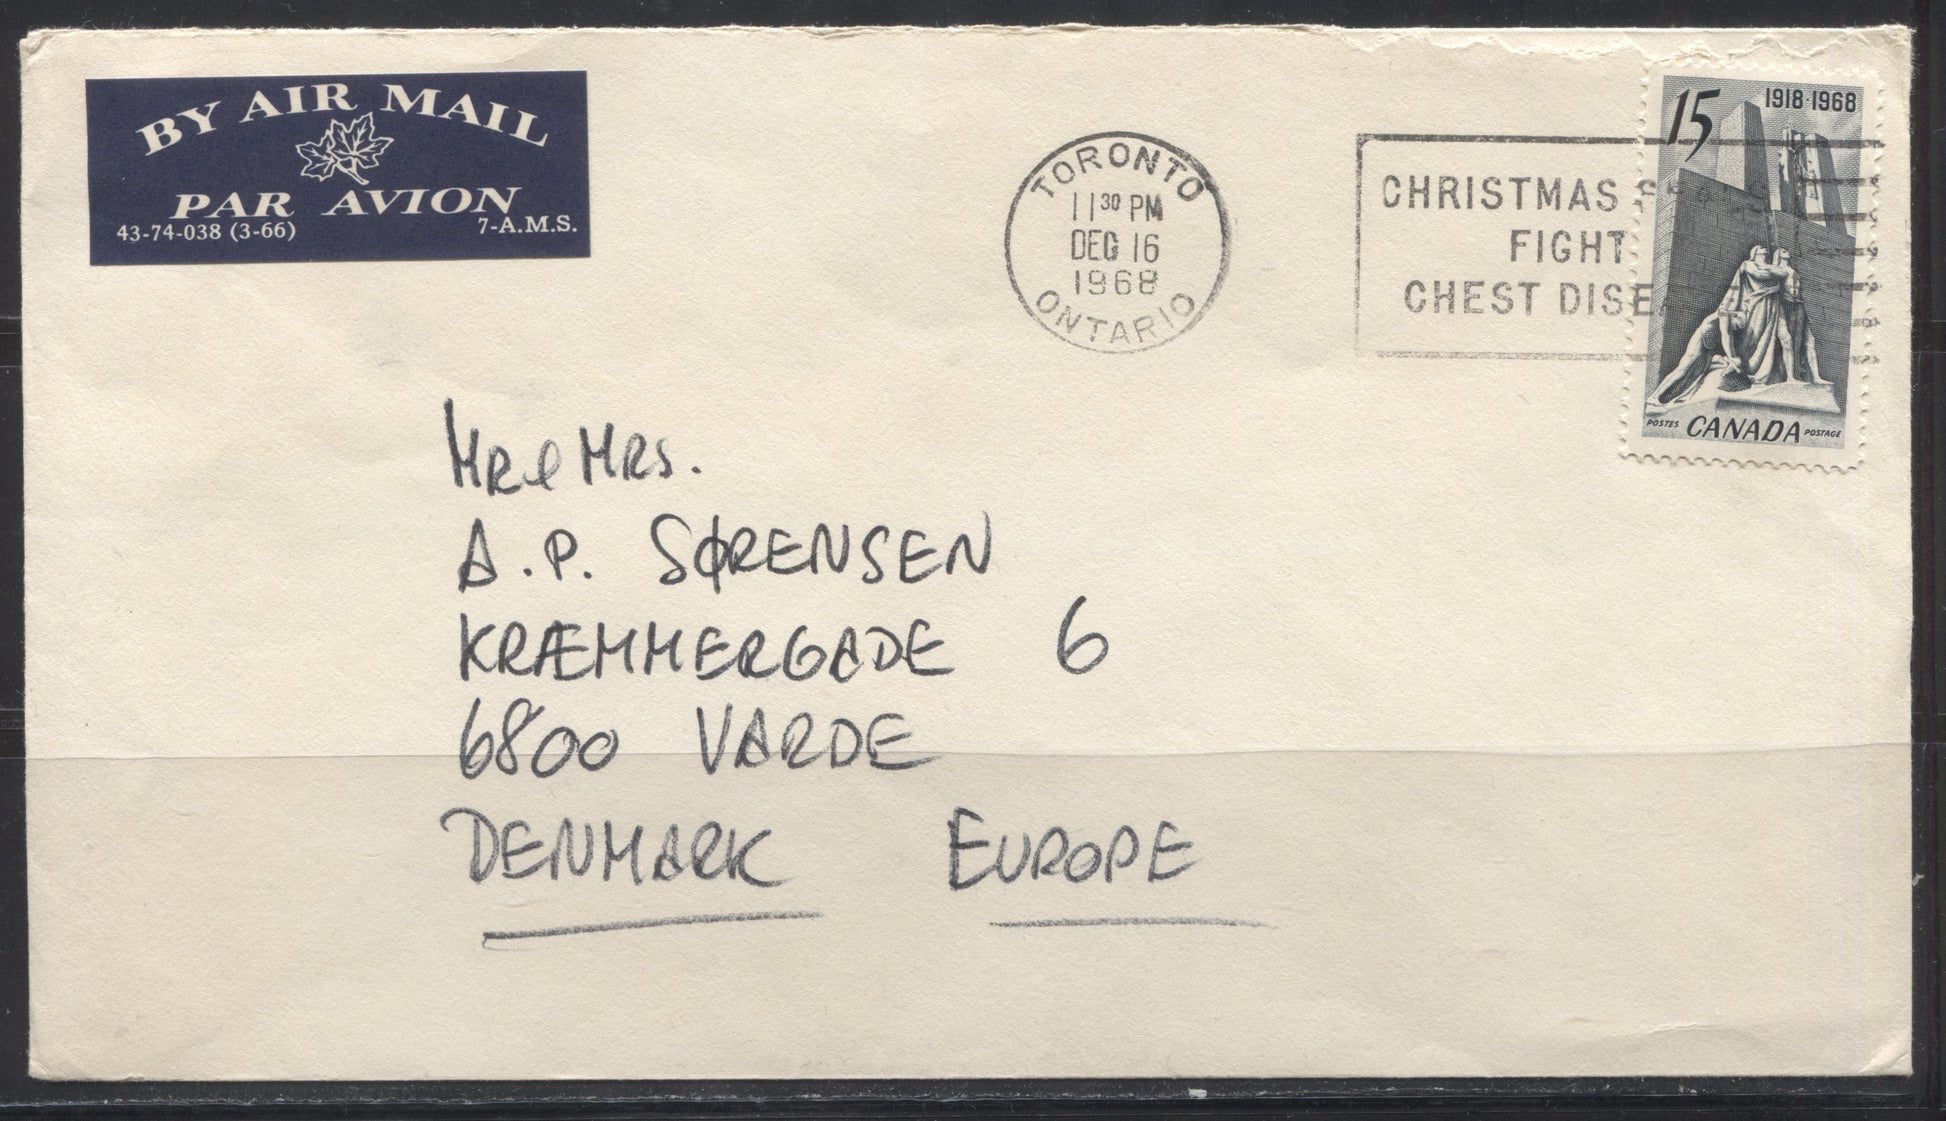 BY AIR MAIL
PAR AVION
43-74-038 (3-66) 7-A.M.S.
TORONTO
11 30 PM
DEC 16
1968
ONTARIO
CHRISTMAS
FIGHT
CHEST
15 1918·1968
POSTES CANADA POSTAGE
MR & MRS.
A.P. SØRENSEN
KRÆMMERGADE 6
6800 VARDE
DENMARK EUROPE